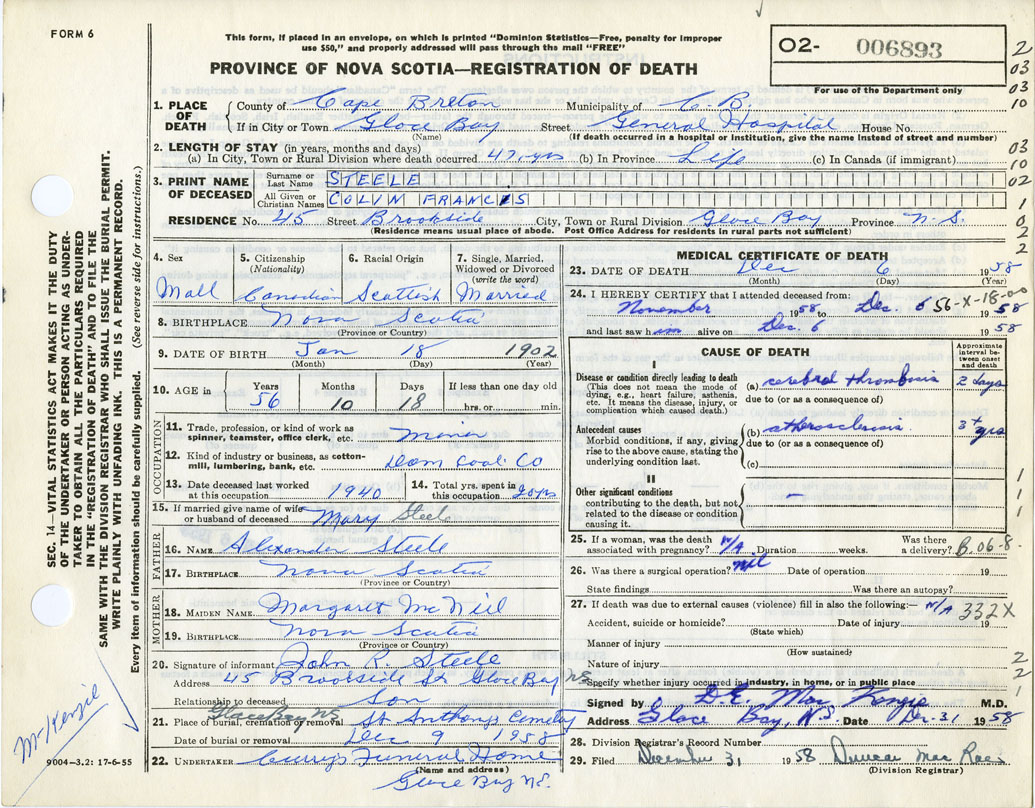 FORM 6
This form, if placed in an envelope, on which is printed "Dominion Statistics—Free, penalty for improper
use $50," and properly addressed will pass through the mail "FREE"
PROVINCE OF NOVA SCOTIA—REGISTRATION OF DEATH
02- 006893
For use of the Department only
1. PLACE OF DEATH
County of Cape Breton Municipality of C.B.
If in City or Town Glace Bay Street General Hospital House No.
(Name) (If death occurred in a hospital or institution, give the name instead of street and number)
2. LENGTH OF STAY (in years, months and days)
(a) In City, Town or Rural Division where death occurred 47 yrs (b) In Province Life (c) In Canada (if immigrant)
3. PRINT NAME OF DECEASED
Surname or Last Name STEELE
All Given or Christian Names COLIN FRANCIS
RESIDENCE No. 45 Street Brookside City, Town or Rural Division Glace Bay Province N.S.
(Residence means usual place of abode. Post Office Address for residents in rural parts not sufficient)
4. Sex Mall
5. Citizenship (Nationality) Canadian
6. Racial Origin Scottish
7. Single, Married, Widowed or Divorced (write the word) Married
8. BIRTHPLACE Nova Scotia
(Province or Country)
9. DATE OF BIRTH Jan 18 1902
(Month) (Day) (Year)
10. AGE in Years 56 Months 10 Days 18 If less than one day old
hrs. or min.
OCCUPATION
11. Trade, profession, or kind of work as
spinner, teamster, office clerk, etc. miner
12. Kind of industry or business, as cotton-
mill, lumbering, bank, etc. Dom Coal Co
13. Date deceased last worked
at this occupation 1940
14. Total yrs. spent in
this occupation 20 yrs
15. If married give name of wife
or husband of deceased Mary Steele
FATHER
16. NAME Alexander Steele
17. BIRTHPLACE Nova Scotia
(Province or Country)
MOTHER
18. MAIDEN NAME Margaret McNeil
19. BIRTHPLACE Nova Scotia
(Province or Country)
20. Signature of informant John R. Steele
Address 45 Brookside St Glace Bay NS
Relationship to deceased Son
Glace Bay NS
21. Place of burial, cremation or removal St Anthonys Cemetery
Date of burial or removal Dec 9 1958
22. UNDERTAKER Curry's Funeral Home
(Name and address)
Glace Bay N.S.
MEDICAL CERTIFICATE OF DEATH
23. DATE OF DEATH Dec 6 1958
(Month) (Day) (Year)
24. I HEREBY CERTIFY that I attended deceased from:
56-X-18-00
November 1958 to Dec. 6 1958
and last saw him alive on Dec 6 1958
CAUSE OF DEATH
Approximate interval between onset and death
I
Disease or condition directly leading to death
(This does not mean the mode of
dying, e.g., heart failure, asthenia,
etc. It means the disease, injury, or
complication which caused death.)
(a) cerebral thrombosis 2 days
due to (or as a consequence of)
Antecedent causes
Morbid conditions, if any, giving
rise to the above cause, stating the
underlying condition last.
(b) atherosclerosis 3+ yrs
due to (or as a consequence of)
(c)
II
Other significant conditions
contributing to the death, but not
related to the disease or condition
causing it.
—
25. If a woman, was the death
associated with pregnancy? N/A Duration weeks.
Was there a delivery? B.06-8
26. Was there a surgical operation? Nil Date of operation 19
State findings Was there an autopsy?
27. If death was due to external causes (violence) fill in also the following:— N/A 332X
Accident, suicide or homicide? Date of injury 19
(State which)
Manner of injury
(How sustained)
Nature of injury
Specify whether injury occurred in industry, in home, or in public place
Signed by D.E. MacKenzie M.D.
Address Glace Bay, N.S. Date Dec. 31 1958
28. Division Registrar's Record Number
29. Filed December 31 1958 Duncan MacRae
(Division Registrar)
SEC. 14—VITAL STATISTICS ACT MAKES IT THE DUTY
OF THE UNDERTAKER OR PERSON ACTING AS UNDER-
TAKER TO OBTAIN ALL THE PARTICULARS REQUIRED
IN THE "REGISTRATION OF DEATH" AND TO FILE THE
SAME WITH THE DIVISION REGISTRAR WHO SHALL ISSUE THE BURIAL PERMIT.
WRITE PLAINLY WITH UNFADING INK. THIS IS A PERMANENT RECORD.
Every item of information should be carefully supplied. (See reverse side for instructions.)
McKenzie
9004—3.2: 17-6-55
2
03
03
10
03
10
02
1
0
2
2
1
1
1
2
2
1